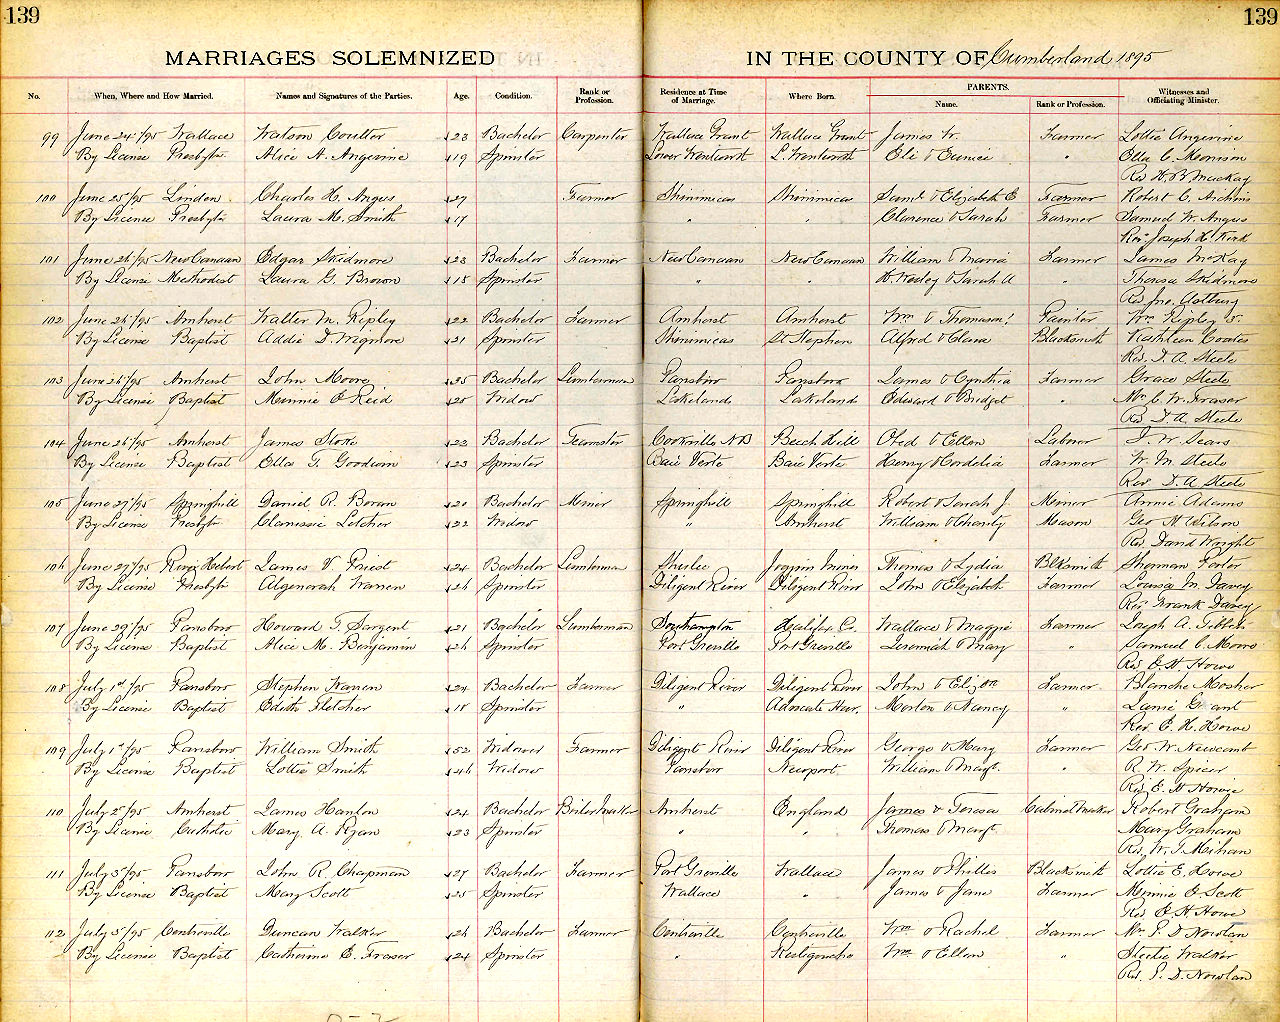 139 139
MARRIAGES SOLEMNIZED IN THE COUNTY OF Cumberland 1895
No. When, Where and How Married. Names and Signatures of the Parties. Age. Condition. Rank or Profession. Residence at Time of Marriage. Where Born. PARENTS. Name. Rank or Profession. Witnesses and Officiating Minister.
99 June 24/95 Wallace Watson Coulter 23 Bachelor Carpenter Wallace Grant Wallace Grant James W. Farmer Lottie Angevine
By License Presbytn Alice A. Angevine 19 Spinster Lower Wentworth L. Wentworth Eli & Eunice " Ella C. Morrison
Rev H. B. Mackay
100 June 25/95 Linden Charles H. Angus 27 Farmer Shinimicas Shinimicas Saml & Elizabeth E Farmer Robert C.
By License Presbytn Laura M. Smith 17 " " Clarence & Sarah Farmer Samuel W. Angus
Rev Joseph H. Kirk
101 June 26/95 New Canaan Edgar Skidmore 23 Bachelor Farmer New Canaan New Canaan William & Maria Farmer James McKay
By License Methodist Laura G. Brown 18 Spinster " " H. Wesley & Sarah A " Theresa Skidmore
Rev Jno. Astbury
102 June 26/95 Amherst Walter M. Ripley 22 Bachelor Farmer Amherst Amherst Wm & Painter Wm Ripley
By License Baptist Addie D. Wigmore 21 Spinster Shinimicas St Stephen Alfred & Clara Blacksmith Kathleen Coates
Rev. D. A. Steele
103 June 26/95 Amherst John Moore 35 Bachelor Lumberman Parsboro Parsboro James & Cynthia Farmer Grace Steele
By License Baptist Minnie E Reid 25 Widow Lakelands Lakelands Edward & Bridget " Mr C. W. Fraser
Rev D. A. Steele
104 June 26/95 Amherst James Stokes 22 Bachelor Teamster Cookville NB Beech Hill Obed & Ellen Laborer J. W. Sears
By License Baptist Ella T. Goodwin 23 Spinster Baie Verte Baie Verte Henry & Cordelia Farmer W. M. Steele
Rev. D. A Steele
105 June 27/95 Springhill Daniel R. Boran 20 Bachelor Miner Springhill Springhill Robert & Sarah J. Miner Annie Adams
By License Presbytn Clarissie Letcher 22 Widow " Amherst William & Charity Mason Geo H Wilson
Rev. David Wright
106 June 27/95 River Hebert James V. Priest 24 Bachelor Lumberman Shulee Joggin Mines Thomas & Lydia Blksmith Sherman Porter
By License Presbytn Algenorah Warren 26 Spinster Diligent River Diligent River John & Elizabeth Farmer Louisa M. Davey
Rev Frank Davey
107 June 29/95 Parsboro Howard T. Sargent 21 Bachelor Lumberman Southampton Halifax Co. Wallace & Maggie Farmer Joseph A.
By License Baptist Alice M. Benjamin 26 Spinster Port Greville Port Greville Jeremiah & Mary " Samuel C. Moore
Rev E. H. Howe
108 July 1st/95 Parsboro Stephen Warren 24 Bachelor Farmer Diligent River Diligent River John & Elizth Farmer Blanche Mosher
By License Baptist Edith Fletcher 18 Spinster " Advocate Har. Morton & Nancy " Grant
Rev. E. H. Howe
109 July 1st/95 Parsboro William Smith 52 Widower Farmer Diligent River Diligent River George & Mary Farmer Geo. W. Newcomb
By License Baptist Lottie Smith 46 Widow Parsboro Newport William & Margt. " R. W. Spicer
Rev. E. H Howe
110 July 2d/95 Amherst James Hanlon 24 Bachelor Boilermaker Amherst England James & Teresa Cabinetmaker Robert Graham
By License Catholic Mary A. Ryan 23 Spinster " " Thomas & Margt. Mary Graham
Rev. W. J. Mihan
111 July 3d/95 Parsboro John R. Chapman 27 Bachelor Farmer Port Greville Wallace James & Phillis Blacksmith Lottie E. Howe
By License Baptist Mary Scott 25 Spinster Wallace " James & Jane Farmer Minnie E. Scott
Rev. E. H. Howe
112 July 3d/95 Centreville Duncan Walker 26 Bachelor Farmer Centreville Centreville Wm & Rachel Farmer Mr. P. D. Nowlan
By License Baptist Catherine E. Fraser 24 Spinster " Restigouche Wm & Ellen " Walker
Rev. P. D. Nowlan